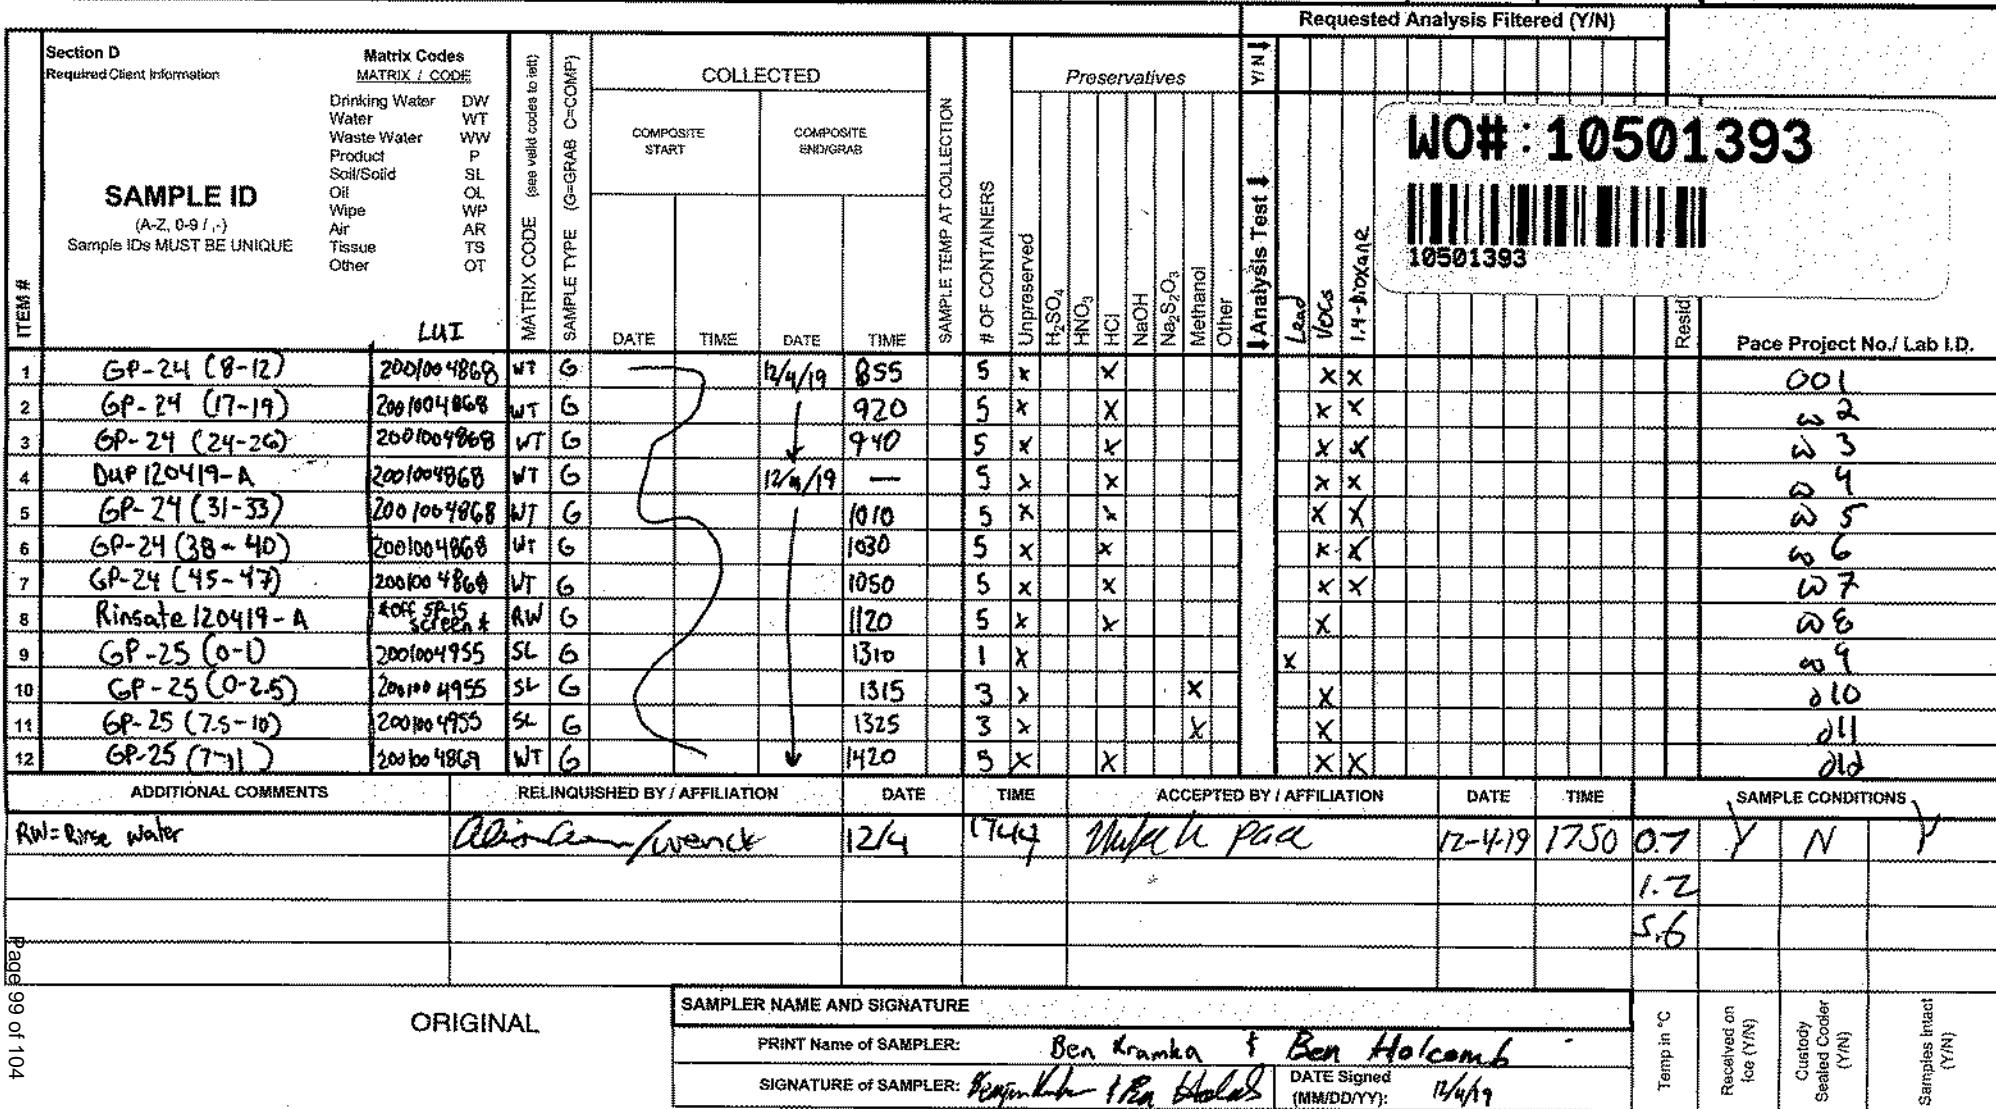 Requested Analysis Filtered (Y/N)
Section D
Required Client Information
Matrix Codes
MATRIX / CODE
Drinking Water DW
Water WT
Waste Water WW
Product P
Soil/Solid SL
Oil OL
Wipe WP
Air AR
Tissue TS
Other OT
SAMPLE ID
(A-Z, 0-9 / ,-)
Sample IDs MUST BE UNIQUE
ITEM #
LUI
MATRIX CODE (see valid codes to left)
SAMPLE TYPE (G=GRAB C=COMP)
COLLECTED
COMPOSITE START
COMPOSITE END/GRAB
DATE TIME DATE TIME
SAMPLE TEMP AT COLLECTION
# OF CONTAINERS
Preservatives
Unpreserved
H₂SO₄
HNO₃
HCl
NaOH
Na₂S₂O₃
Methanol
Other
Y/N
Analysis Test
Lead
VOCs
1,4-Dioxane
WO#: 10501393
10501393
Resid
Pace Project No./ Lab I.D.
1 GP-24 (8-12) 2001004868 WT G 12/4/19 855 5 x X X X 001
2 GP-24 (17-19) 2001004868 WT G 920 5 x X X X 2
3 GP-24 (24-26) 2001004868 WT G 940 5 x X X X 3
4 DUP120419-A 2001004868 WT G 12/4/19 — 5 x X X X 4
5 GP-24 (31-33) 2001004868 WT G 1010 5 x X X X 5
6 GP-24 (38-40) 2001004868 WT G 1030 5 x X X X 6
7 GP-24 (45-47) 2001004868 WT G 1050 5 x X X X 7
8 Rinsate 120419-A *off SP-15 screen* RW G 1120 5 x X X 8
9 GP-25 (0-1) 2001004955 SL G 1310 1 X X 9
10 GP-25 (0-2.5) 2001004955 SL G 1315 3 x X X 010
11 GP-25 (7.5-10) 2001004955 SL G 1325 3 x X X 011
12 GP-25 (7-11) 2001004869 WT G 1420 5 X X X X 012
ADDITIONAL COMMENTS RELINQUISHED BY / AFFILIATION DATE TIME ACCEPTED BY / AFFILIATION DATE TIME SAMPLE CONDITIONS
RW=Rinse water /wenck 12/4 1744 pace 12-4-19 1750 0.7 Y N Y
1.2
5.6
Page 99 of 104
ORIGINAL
SAMPLER NAME AND SIGNATURE
PRINT Name of SAMPLER: Ben Kramka & Ben Holcomb
SIGNATURE of SAMPLER:
DATE Signed (MM/DD/YY): 12/4/19
Temp in °C
Received on Ice (Y/N)
Custody Sealed Cooler (Y/N)
Samples Intact (Y/N)